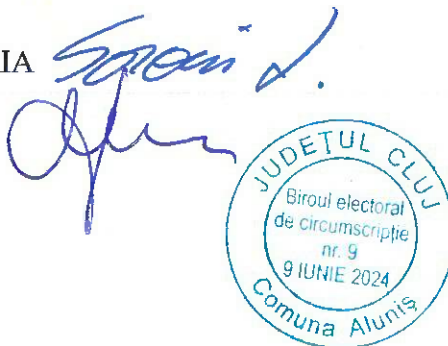 IA
JUDEȚUL CLUJ
Biroul electoral
de circumscripție
nr. 9
9 IUNIE 2024
Comuna Aluniș